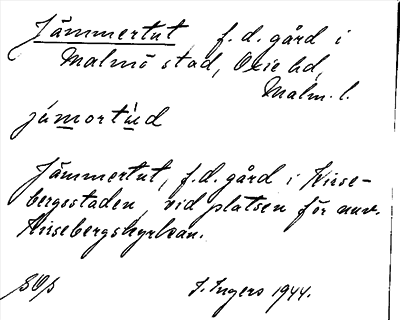 Jämmertut, f. d. gård i
Malmö stad, Oxie hd,
Malm. l.
jämortùd
Jämmertut, f. d. gård i Kirse-
bergsstaden, vid platsen för nuv.
Kirsebergskyrkan.
I. Ingers 1944.